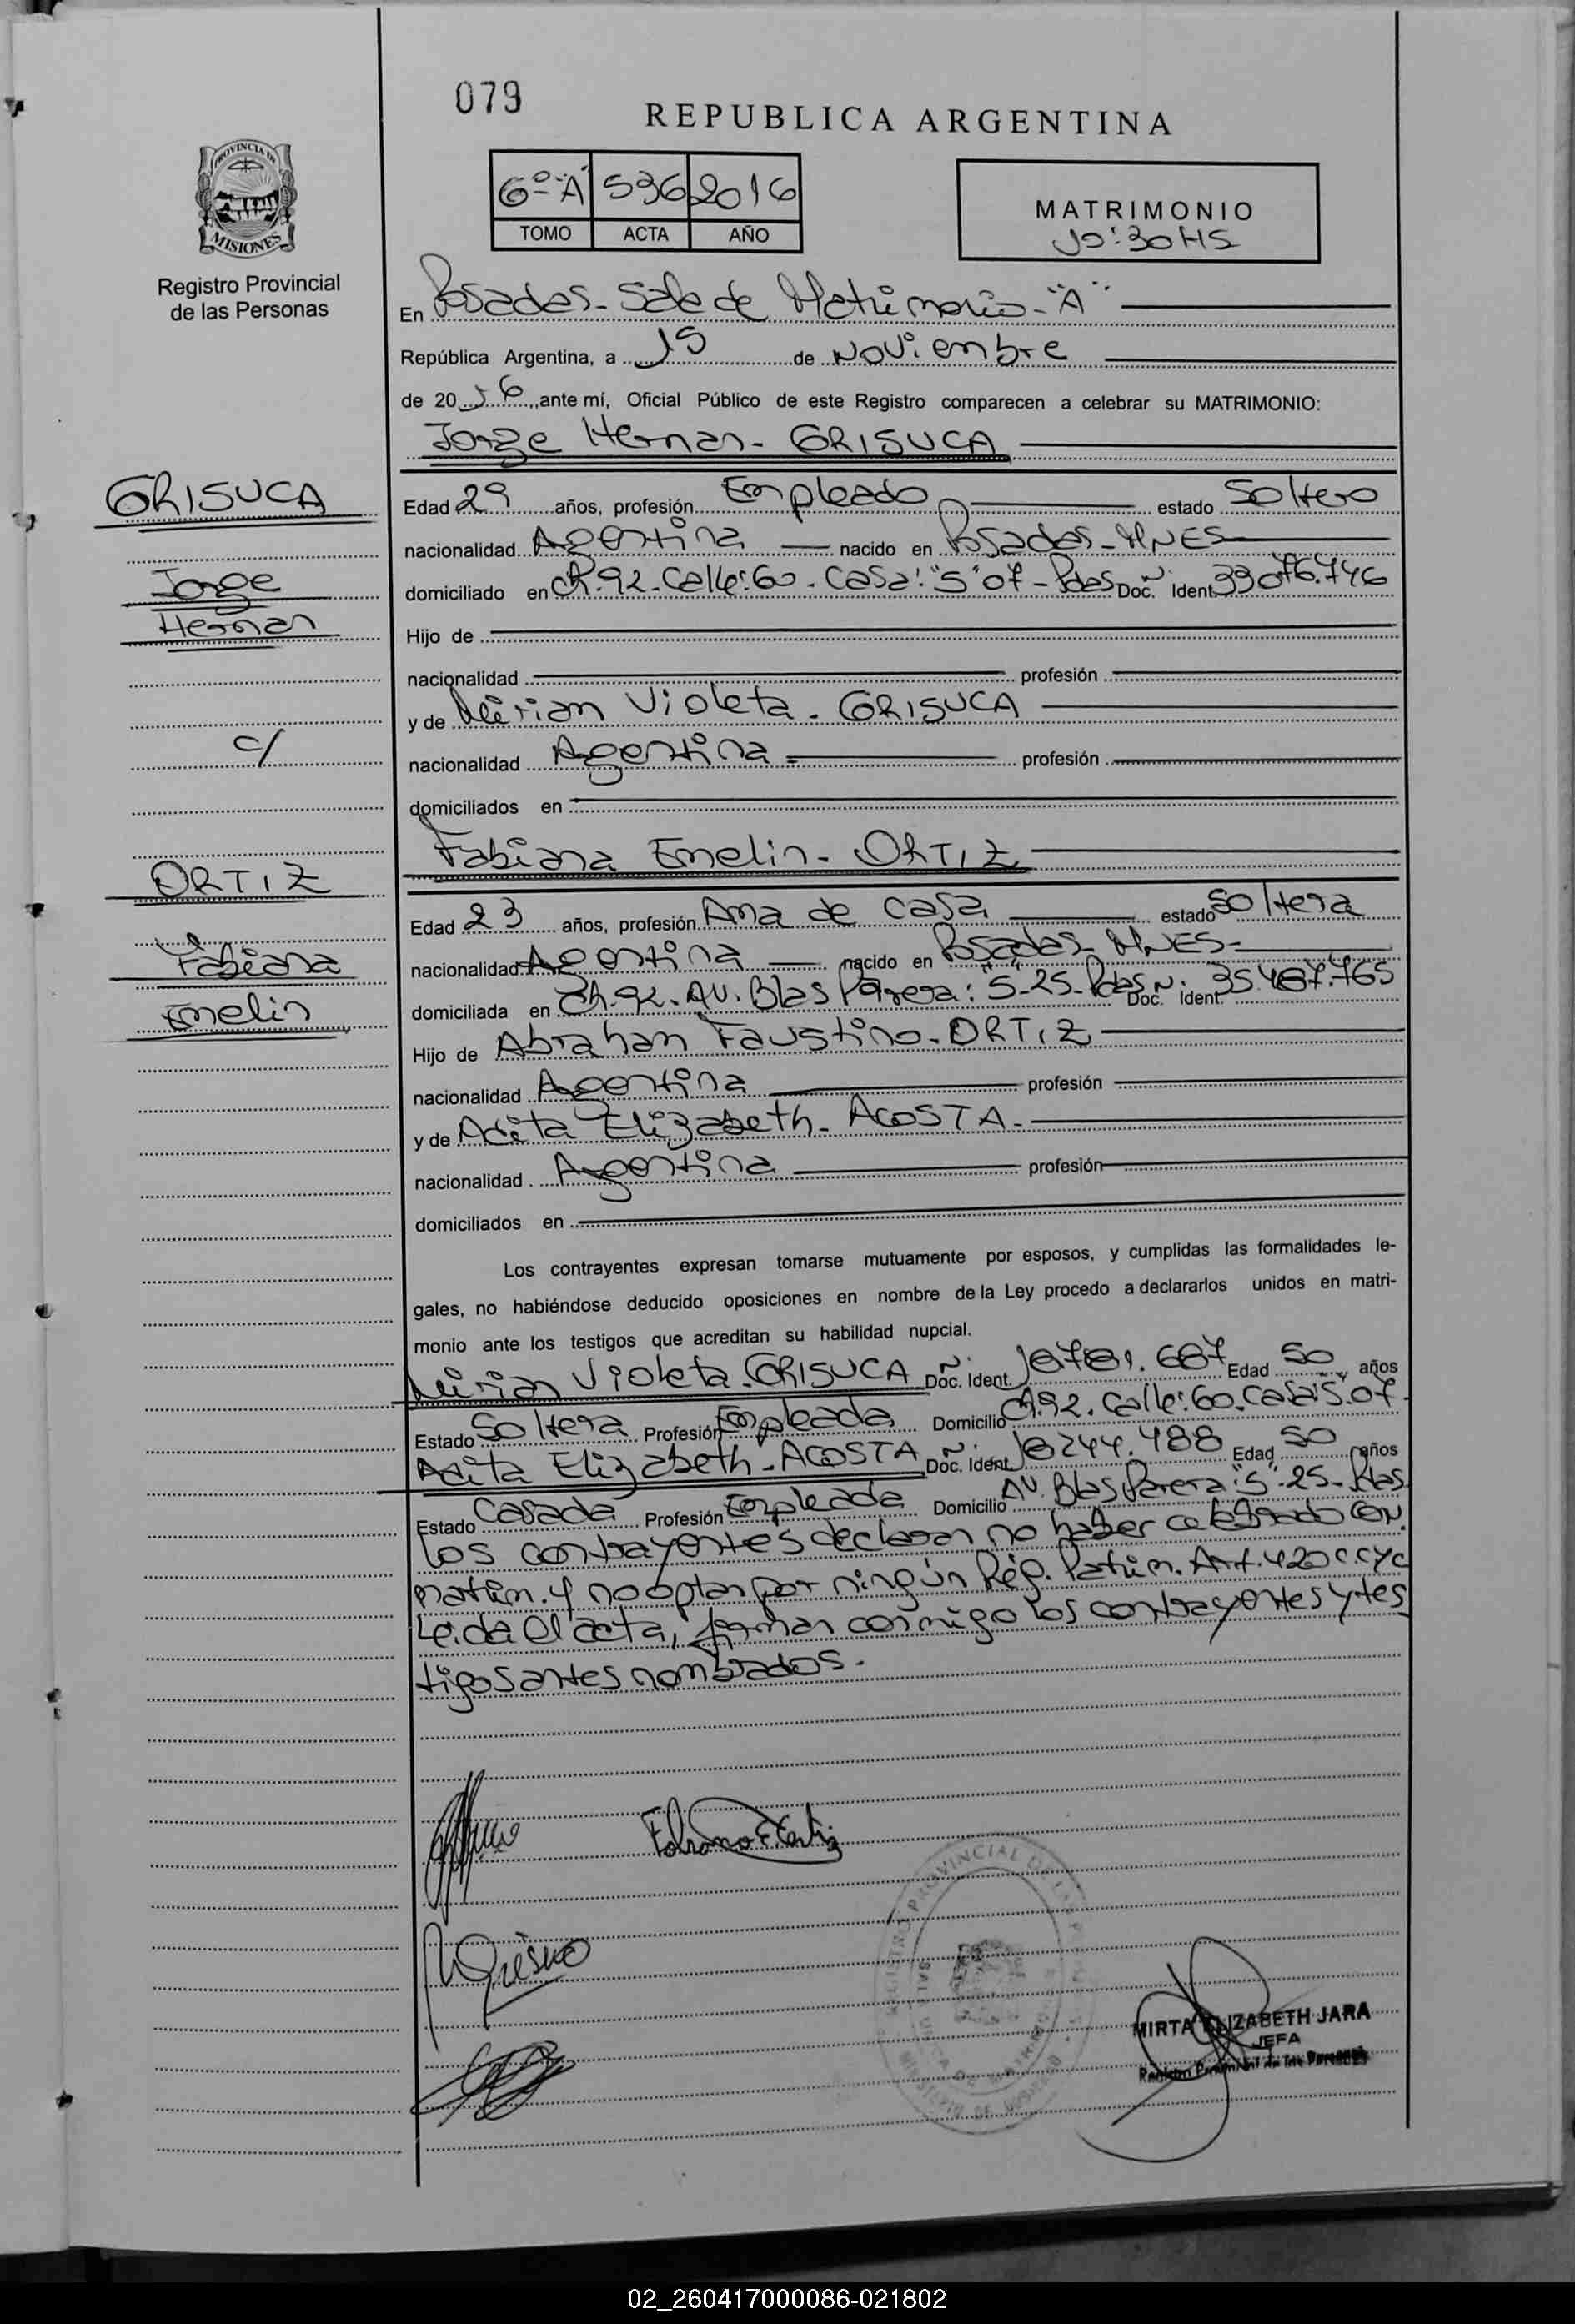 079
REPUBLICA ARGENTINA
PROVINCIA DE
MISIONES
Registro Provincial
de las Personas
6º "A" 536 2016
TOMO ACTA AÑO
MATRIMONIO
10:30 HS
En Posadas - Sala de Matrimonio - "A"
República Argentina, a 15 de Noviembre
de 2016, ante mí, Oficial Público de este Registro comparecen a celebrar su MATRIMONIO:
Jorge Hernan - GRISUCA
GRISUCA
Jorge
Hernan
c/
ORTIZ
Fabiana
Emelin
Edad 29 años, profesión Empleado estado Soltero
nacionalidad Argentina nacido en Posadas - MNES
domiciliado en Ch. 92 - Calle: 60 - Casa: "5" 07 - Pdas Doc. Ident. Nº 33.076.746
Hijo de
nacionalidad profesión
y de Mirian Violeta - GRISUCA
nacionalidad Argentina profesión
domiciliados en
Fabiana Emelin - ORTIZ
Edad 23 años, profesión Ama de casa estado Soltera
nacionalidad Argentina nacido en Posadas - MNES -
domiciliada en Ch. 92 - AV. Blas Parera: "5" - 25 - Pdas Doc. Ident. Nº 35.487.765
Hijo de Abraham Faustino - ORTIZ
nacionalidad Argentina profesión
y de Adita Elizabeth - ACOSTA -
nacionalidad Argentina profesión
domiciliados en
Los contrayentes expresan tomarse mutuamente por esposos, y cumplidas las formalidades le-
gales, no habiéndose deducido oposiciones en nombre de la Ley procedo a declararlos unidos en matri-
monio ante los testigos que acreditan su habilidad nupcial.
Mirian Violeta - GRISUCA Doc. Ident. Nº 18.781.687 Edad 50 años
Estado Soltera Profesión Empleada Domicilio Ch. 92 - Calle: 60 - Casa: 5 - 07 -
Adita Elizabeth - ACOSTA Doc. Ident. Nº 18.244.488 Edad 50 años
Estado Casada Profesión Empleada Domicilio AV. Blas Parera "5" - 25 - Pdas
Los contrayentes declaran no haber celebrado Con.
matrim. y no optan por ningún Rég. Patrim. Art. 420 C.C y C
Leida el acta, firman conmigo los contrayentes y tes
tigos antes nombrados. -
MIRTA ELIZABETH JARA
JEFA
Registro Provincial de las Personas
02_260417000086-021802